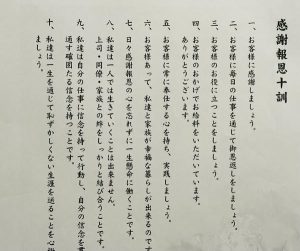 感謝報恩十訓
一、お客様に感謝しましょう。
二、お客様に毎日の仕事を通じて御恩返しをしましょう。
三、お客様のお役に立つことをしましょう。
四、お客様のおかげでお給料をいただいています。
ありがとうございます。
五、お客様に常に奉仕する心を持ち、実践しましょう。
六、お客様あって、私達と家族が幸福な暮らしが出来るのです
七、日々感謝報恩の心を忘れずに一生懸命に働くことです。
八、私達は一人では生きていくことは出来ません。
上司・同僚・家族との絆をしっかりと結び合うことです。
九、私達は自分の仕事に信念を持って行動し、自分の信念を貫
通す堅固たる信念を持つことです。
十、私達は一生を通じて恥ずかしくない生涯を送ることを心
ましょう。